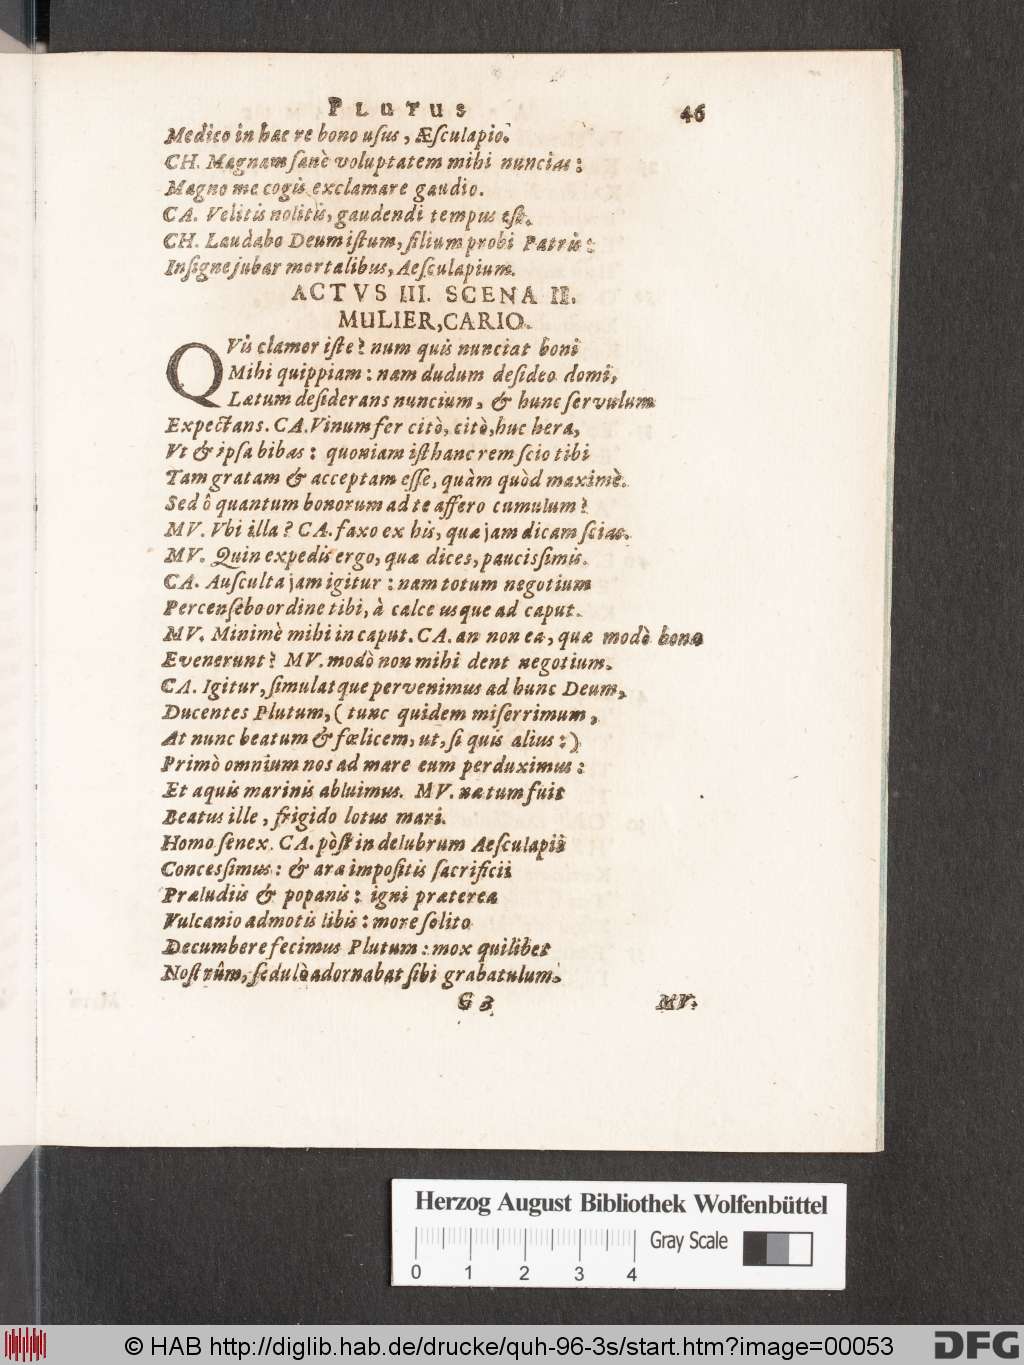 PLUTUS 46
Medico in hac re bono uſus, Æſculapio.
CH. Magnam ſanè voluptatem mihi nuncias:
Magno me cogis exclamare gaudio.
CA. Velitis nolitis, gaudendi tempus eſt.
CH. Laudabo Deum iſtum, filium probi Patris:
Inſigne jubar mortalibus, Aeſculapium.
ACTVS III. SCENA II.
MULIER, CARIO.
QVis clamor iſte? num quis nunciat boni
Mihi quippiam: nam dudum deſideo domi,
Lætum deſiderans nuncium, & hunc ſervulum
Expectans. CA. Vinum fer citò, citò, huc hera,
Vt & ipſa bibas: quoniam iſthanc rem ſcio tibi
Tam gratam & acceptam eſſe, quàm quòd maximè.
Sed ô quantum bonorum ad te affero cumulum?
MV. Vbi illa? CA. faxo ex his, quæ jam dicam ſcias.
MV. Quin expedis ergo, quæ dices, pauciſsimis.
CA. Auſculta jam igitur: nam totum negotium
Percenſebo ordine tibi, à calce usque ad caput.
MV. Minimè mihi in caput. CA. an non ea, quæ modò bona
Evenerunt? MV. modò non mihi dent negotium.
CA. Igitur, ſimulatque pervenimus ad hunc Deum,
Ducentes Plutum, (tunc quidem miſerrimum,
At nunc beatum & fœlicem, ut, ſi quis alius:)
Primò omnium nos ad mare eum perduximus:
Et aquis marinis abluimus. MV. næ tum fuit
Beatus ille, frigido lotus mari.
Homo ſenex. CA. pòſt in delubrum Aeſculapii
Conceſsimus: & aræ impoſitis ſacrificii
Præludiis & popanis: igni præterea
Vulcanio admotis libis: more ſolito
Decumbere fecimus Plutum: mox quilibet
Noſtrûm, ſedulò adornabat ſibi grabatulum.
G 3 MV.
Herzog August Bibliothek Wolfenbüttel
Gray Scale
0 1 2 3 4
© HAB http://diglib.hab.de/drucke/quh-96-3s/start.htm?image=00053
DFG